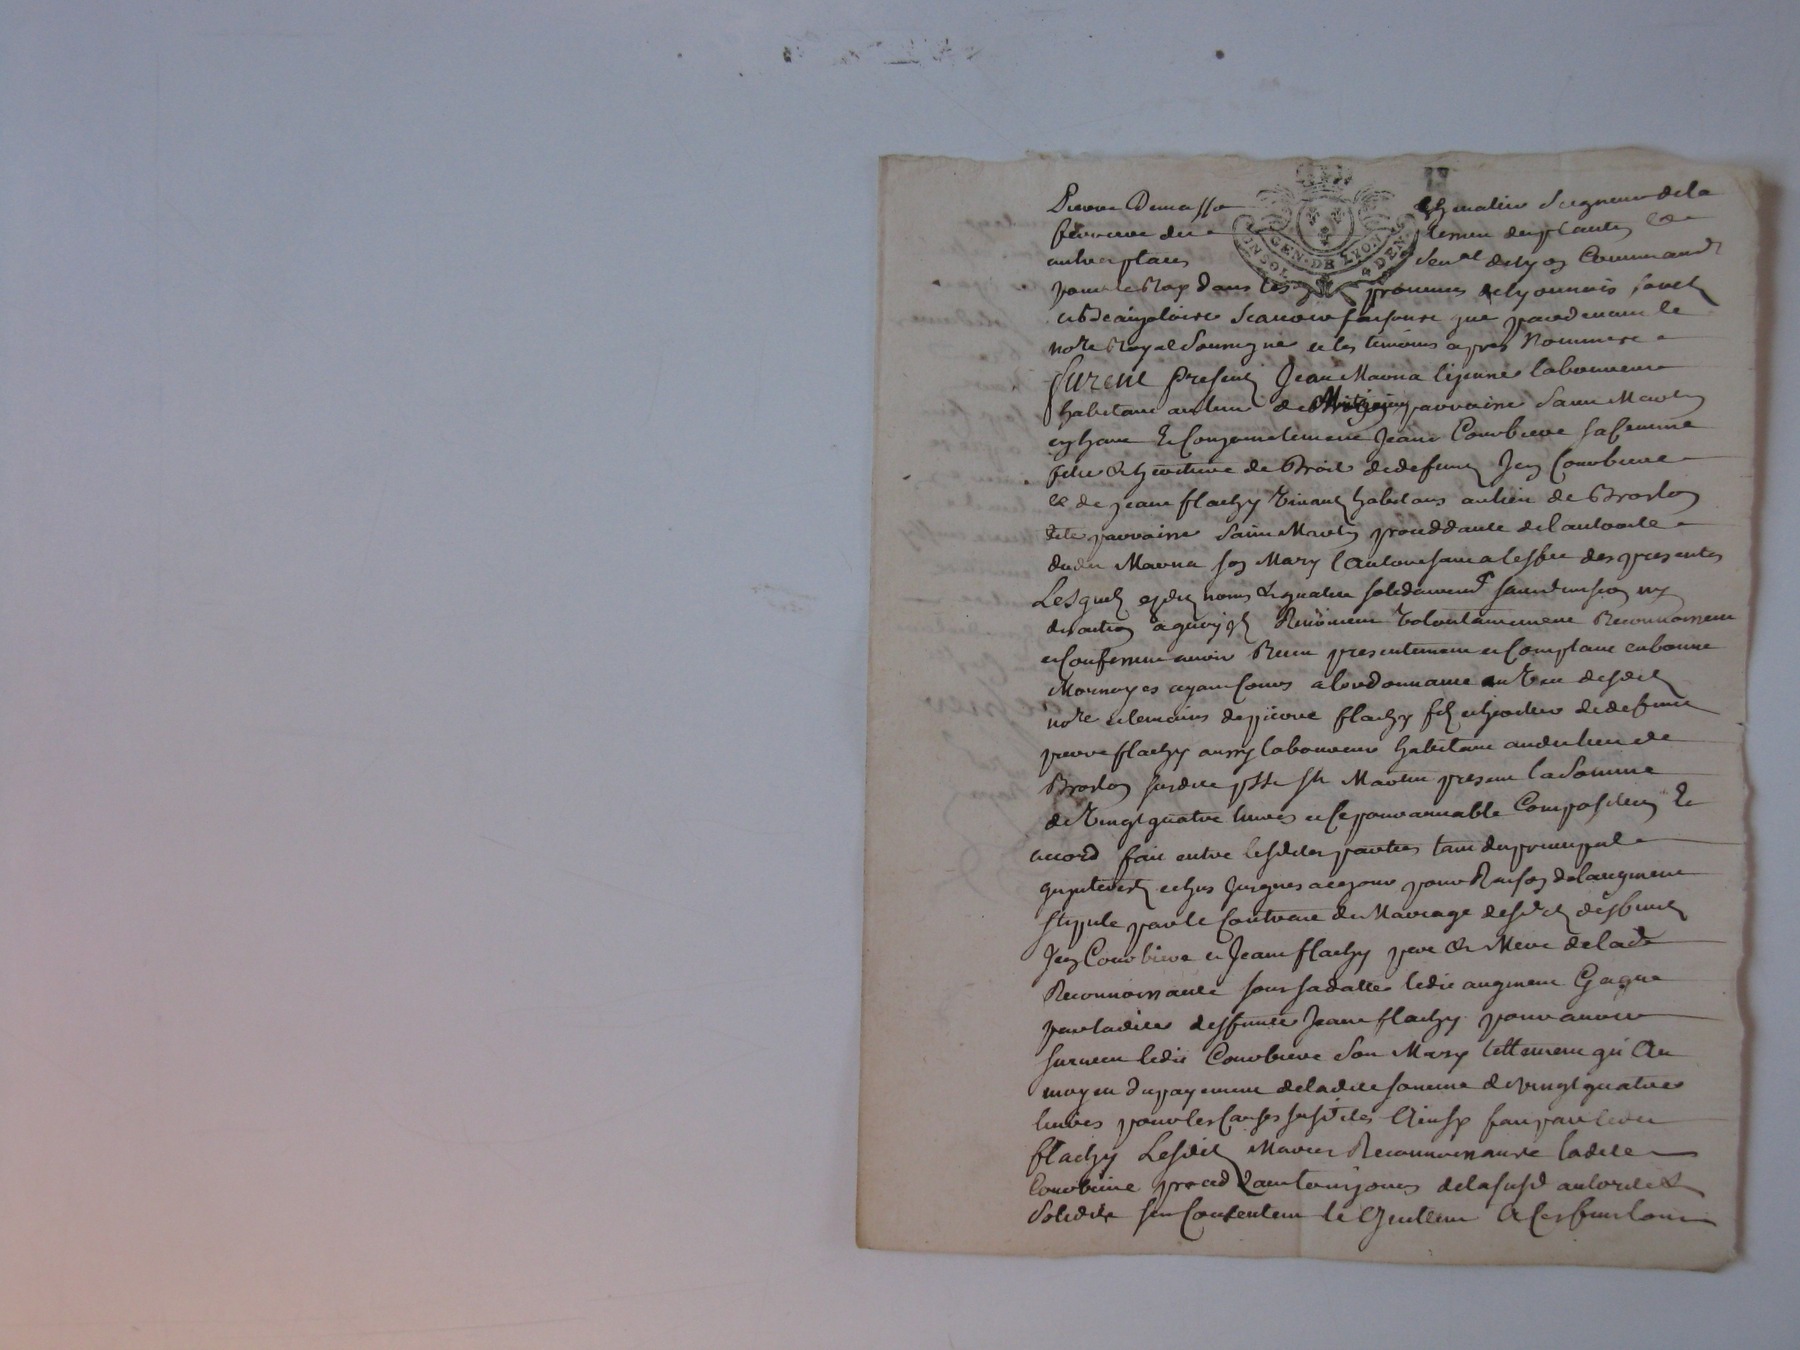 Pierre Demasso chevalier Seigneur de la
ferriere du terrieu desplantes &
autres places Senal de Lyon Commandt
pour le Roy dans les provinces de lyonnois forest
et Beaujolois scavoir faisons que pardevant le
nore Royal Soussigné et les temoins apres Nommes
furent presents Jean Mavria le jeune laboureur
habitant au lieu de parroisse Saint Martin
en haut Et conjointement Jeane Courbiere sa femme
fille & heritiere de Droit de defunt Jean Courbiere
& de jeane flachy vivants habitans au lieu de Brosson
dite parroisse Saint Martin proceddante de l'autorite
dudit Mavria son Mary l'autorisant a l'effet des presentes
Lesquels esdits noms & qualites solidairement sans division ny
disction a quoy ils Renoncent volontairement Reconnoissent
et Confessent avoir Receu presentement et Comptant en bonne
Monnoyes ayant Cours a l'ordonnance au veu desdits
nore et temoins de pierre flachy fils et heritier de defunt
pierre flachy aussy laboureur habitant audit lieu de
Brosson susdite psse St Martin present la Somme
de vingt quatre livres et ce pour amiable Composition Et
accord fait entre lesdites parties tant du principal
qu'interests echus jusques a ce jour pour Raison de l'augment
stipule par le Contract de Mariage desdits deffunts
Jean Courbiere et Jeane flachy pere & Mere de lade
Reconnoissante sous sa datte ledit augment Gagné
par ladite deffunte Jeane flachy pour avoir
survecu ledit Courbiere Son Mary tellement qu'Au
moyen du payement de ladite somme de vingt quatre
livres pour les Causes susdites Ainsy fait par ledit
flachy Lesdits Mariés Reconnoissants ladite
Courbiere proceddante toujours de la susd autorite &
Solidite s'en Contentent le Quittent